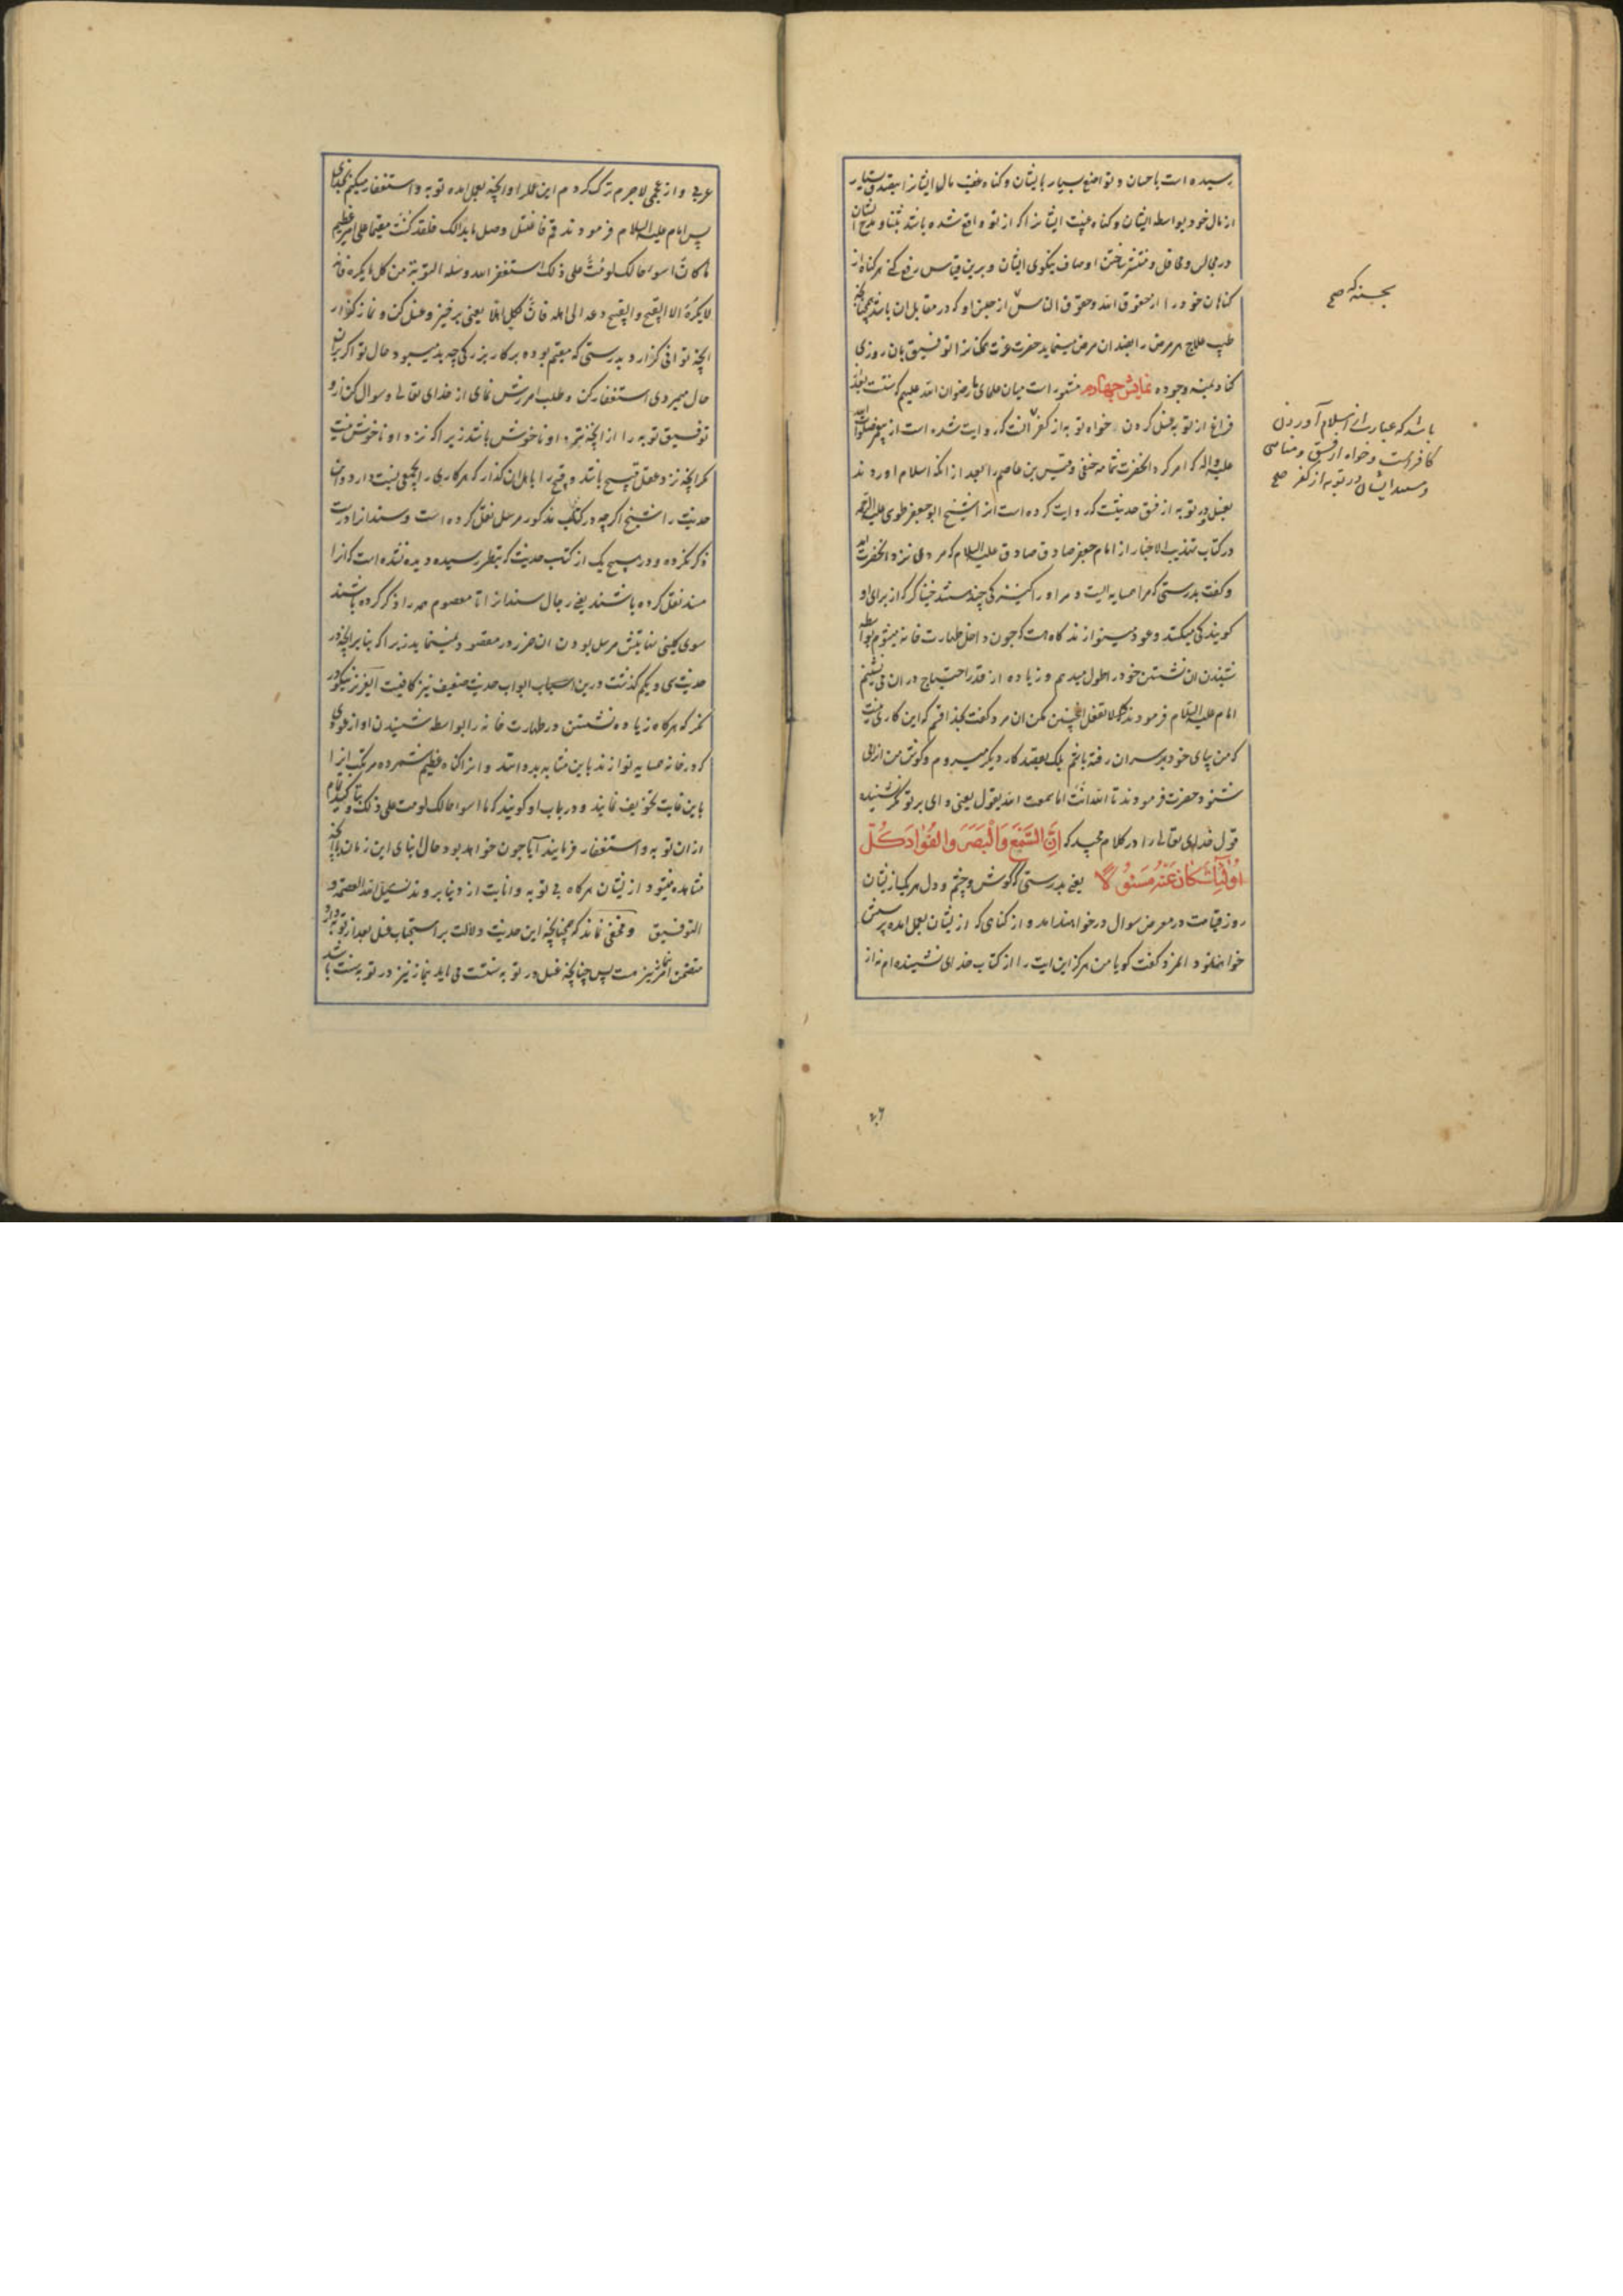 رسیده است باحسان و تواضع بسیار بایشان و کناه غصب مال ایشانرا بتصدق بسیار
از مال خود بواسطه ایشان و کناه غیبت ایشانرا که از تو واقع شده باشد بثنا و مدح ایشان
در مجالس و محافل و منتشر ساختن اوصاف نیکوی ایشان و برین قیاس رفع کن هر کناه از
کناهان خود را از حقوق الله و حقوق الناس از جنس او که در مقابل آن باشد همچنانکه
طبیب علاج هر مرض را بضد ان مرض مینماید حضرت عزت همکنانرا توفیق بان روزی
کناد بمنه وجوده نمایش چهارم مشهور است میان علمای ما رضوان الله علیهم که سنت بعد
فراغ از توبه غسل کردن خواه توبه از کفر که روایت شده است از پیغمبر صلوات الله
علیه واله که امر کرد انحضرت ثمامه حنفی و قیس بن عاصم را بعد از انکه اسلام اوردند
بغسل و توبه از فسق حدیثیست که روایت کرده است انرا شیخ ابو جعفر طوسی علیه الرحمه
در کتاب تهذیب الاخبار از امام جعفر صادق علیه السلام که مردی نزد انحضرت آمد
و کفت بدرستی که مرا همسایه ایست و مر او را کنیزکی چند هستند که از برای او
کویندکی میکنند و عود مینوازند کاه هست که چون داخل طهارت خانه میشوم بواسطه
شنیدن ان نشستن خود را طول میدهم و زیاده از قدر احتیاج در ان می نشینم
امام علیه السلام فرمودند که لا تفعل اینچنین مکن ان مرد کفت بخدا قسم که این کاری نیست
که من بپای خود بر سر ان رفته باشم بلکه بقصد کار دیکر میروم و کوش من انرا می
شنود حضرت فرمودند تالله انت اما سمعت الله یقول یعنی وای بر تو مکر نشنیده
قول خدای تعالی را در کلام مجید که اِنَّ السَّمْعَ وَالْبَصَرَ وَالفُؤادَ كُلُّ
اُولٰئِكَ كانَ عَنْهُ مَسئُولاً یعنی بدرستی که کوش و چشم و دل هر یک از ایشان
روز قیامت در معرض سوال در خواهند امد و از کناهی که از ایشان بعمل امده پرسش
خواهد بود المرد کفت کویا من هرکز این ایت را از کتاب خدای نشنیده ام نه از
بحسنه که صح
باشد که عبارت از اسلام آوردن
کافر است و خواه از فسق و معاصی
و مستند ایشان در توبه از کفر صح
عربی و از عجمی لاجرم ترک کردم این عمل را و انچه بعمل امده توبه و استغفار میکنم بخدای
پس امام علیه السلام فرمودند قم فاغتسل وصل ما بدالک فلقد کنت مقیما علی امر عظیم
ما کان اسوا حالک لومت علی ذلک استغفر الله وسله التوبة من کل ما یکره فانه
لا یکره الا القبیح والقبیح دعه الی اهله فان لکل اهلا یعنی برخیز و غسل کن و نماز کذار
انچه توانی کزارد بدرستی که مقیم بوده بر کار بزرکی چه بد میبود حال تو اکر بران
حال میمردی استغفار کن و طلب امرزش نمای از خدای تعالی و سوال کن ازو
توفیق توبه را از انچه نزد او ناخوش باشد زیرا که نزد او ناخوش نیست
مکر انچه نزد عقل قبیح باشد و قبیح را باهل ان کذار که هر کاری را اهلی هست
حدیث را شیخ اکرچه در کتاب مذکور مرسل نقل کرده است و سند انرا درست
ذکر نکرده و در هیچ یک از کتب حدیث که بنظر رسیده دیده نشده است که انرا
مسند نقل کرده باشند یعنی رجال سند انرا تا معصوم همه را ذکر کرده باشند
سوی کلینی نهایتش مرسل بودن ان ضرر در مقصود نمینماید زیرا که بنا بر انچه در
حدیث سی و یکم کذشت درین باب حدیث ضعیف نیز کافیست ای عزیز نیکو
نکر که هرکاه زیاده نشستن در طهارت خانه را بواسطه شنیدن آواز عودی
که در خانه همسایه نوازند باین مثابه بد دانند و انرا کناه عظیم شمرده مرتکب انرا
باین غایت تخویف نمایند و در باب او کویند که ما اسوا حالک لومت علی ذلک و بتاکید تمام
از ان توبه و استغفار فرمایند آیا چون خواهد بود حال ابنای این زمان با انچه
مشاهده میشود از ایشان هرکاه بی توبه و انابت از دنیا بروند نسئل الله العصمة و
التوفیق و مخفی نماند که همچنانکه این حدیث دلالت بر استحباب غسل بعد از توبه دارد
متضمن امر نماز نیز هست پس چنانچه غسل در توبه سنت می اید نماز نیز در توبه سنت باشد